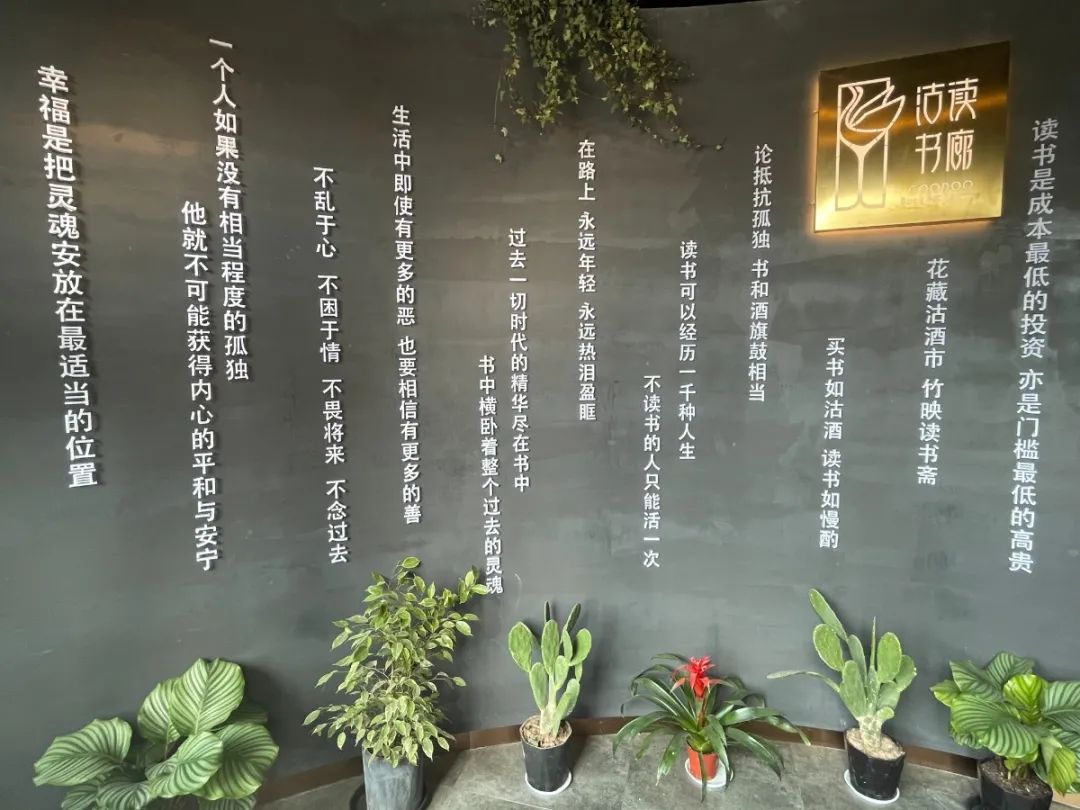 读书是成本最低的投资 亦是门槛最低的高贵
沽读
书廊
花藏沽酒市 竹映读书斋
买书如沽酒 读书如慢酌
论抵抗孤独 书和酒旗鼓相当
读书可以经历一千种人生
不读书的人只能活一次
在路上 永远年轻 永远热泪盈眶
过去一切时代的精华尽在书中
书中横卧着整个过去的灵魂
生活中即使有更多的恶 也要相信有更多的善
不乱于心 不困于情 不畏将来 不念过去
一个人如果没有相当程度的孤独
他就不可能获得内心的平和与安宁
幸福是把灵魂安放在最适当的位置